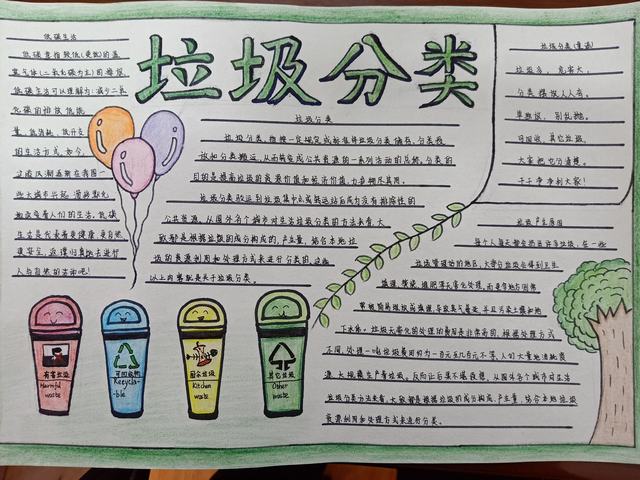 垃圾分类
低碳生活
低碳意指较低(更低)的温
室气体(二氧化碳为主)的排放,
低碳生活可以理解为:减少二氧
化碳的排放,低能
量、低消耗、低开支
的生活方式。如今,
这股风潮逐渐在我国一
些大城市兴起,潜移默化
地改变着人们的生活。低碳
生活代表着更健康、更自然、
更安全,返璞归真地去进行
人与自然的活动吧!
垃圾分类
垃圾分类,指按一定规定或标准将垃圾分类储存、分类投
放和分类搬运,从而转变成公共资源的一系列活动的总称。分类的
目的是提高垃圾的资源价值和经济价值,力争物尽其用。
公共资源。从国外各个城市对生活垃圾分类的方法来看,大
致都是根据垃圾的成分构成的、产生量,结合本地垃
圾的资源利用和处理方式来进行分类的。
以上内容就是关于垃圾分类。
垃圾分类(童谣)
垃圾多,危害大,
分类摆放人人夸。
果皮纸,别乱抛。
可回收,其它垃圾,
大家把它分清楚。
干干净净利大家!
垃圾产生原因
每个人每天都会扔出许多垃圾,在一些
垃圾管理好的地区,大部分垃圾会得到卫生
填埋、焚烧、堆肥等无害化处理,而更多地方
常被简易堆放或填埋,导致臭气蔓延,并且污染土壤和地
下水体。垃圾无害化的处理的费用是非常高的,根据处理方式
不同,处理一吨垃圾费用约为一百元至几百元不等。人们大量地消耗资
源,大规模生产
垃圾分类方法来看,大致都是根据垃圾的成分构成、产生量,结合本地垃圾
资源利用和处理方式来进行分类。
有害垃圾
Harmful
waste
可回收物
Recycla-
ble
厨余垃圾
Kitchen
waste
其它垃圾
Other
waste